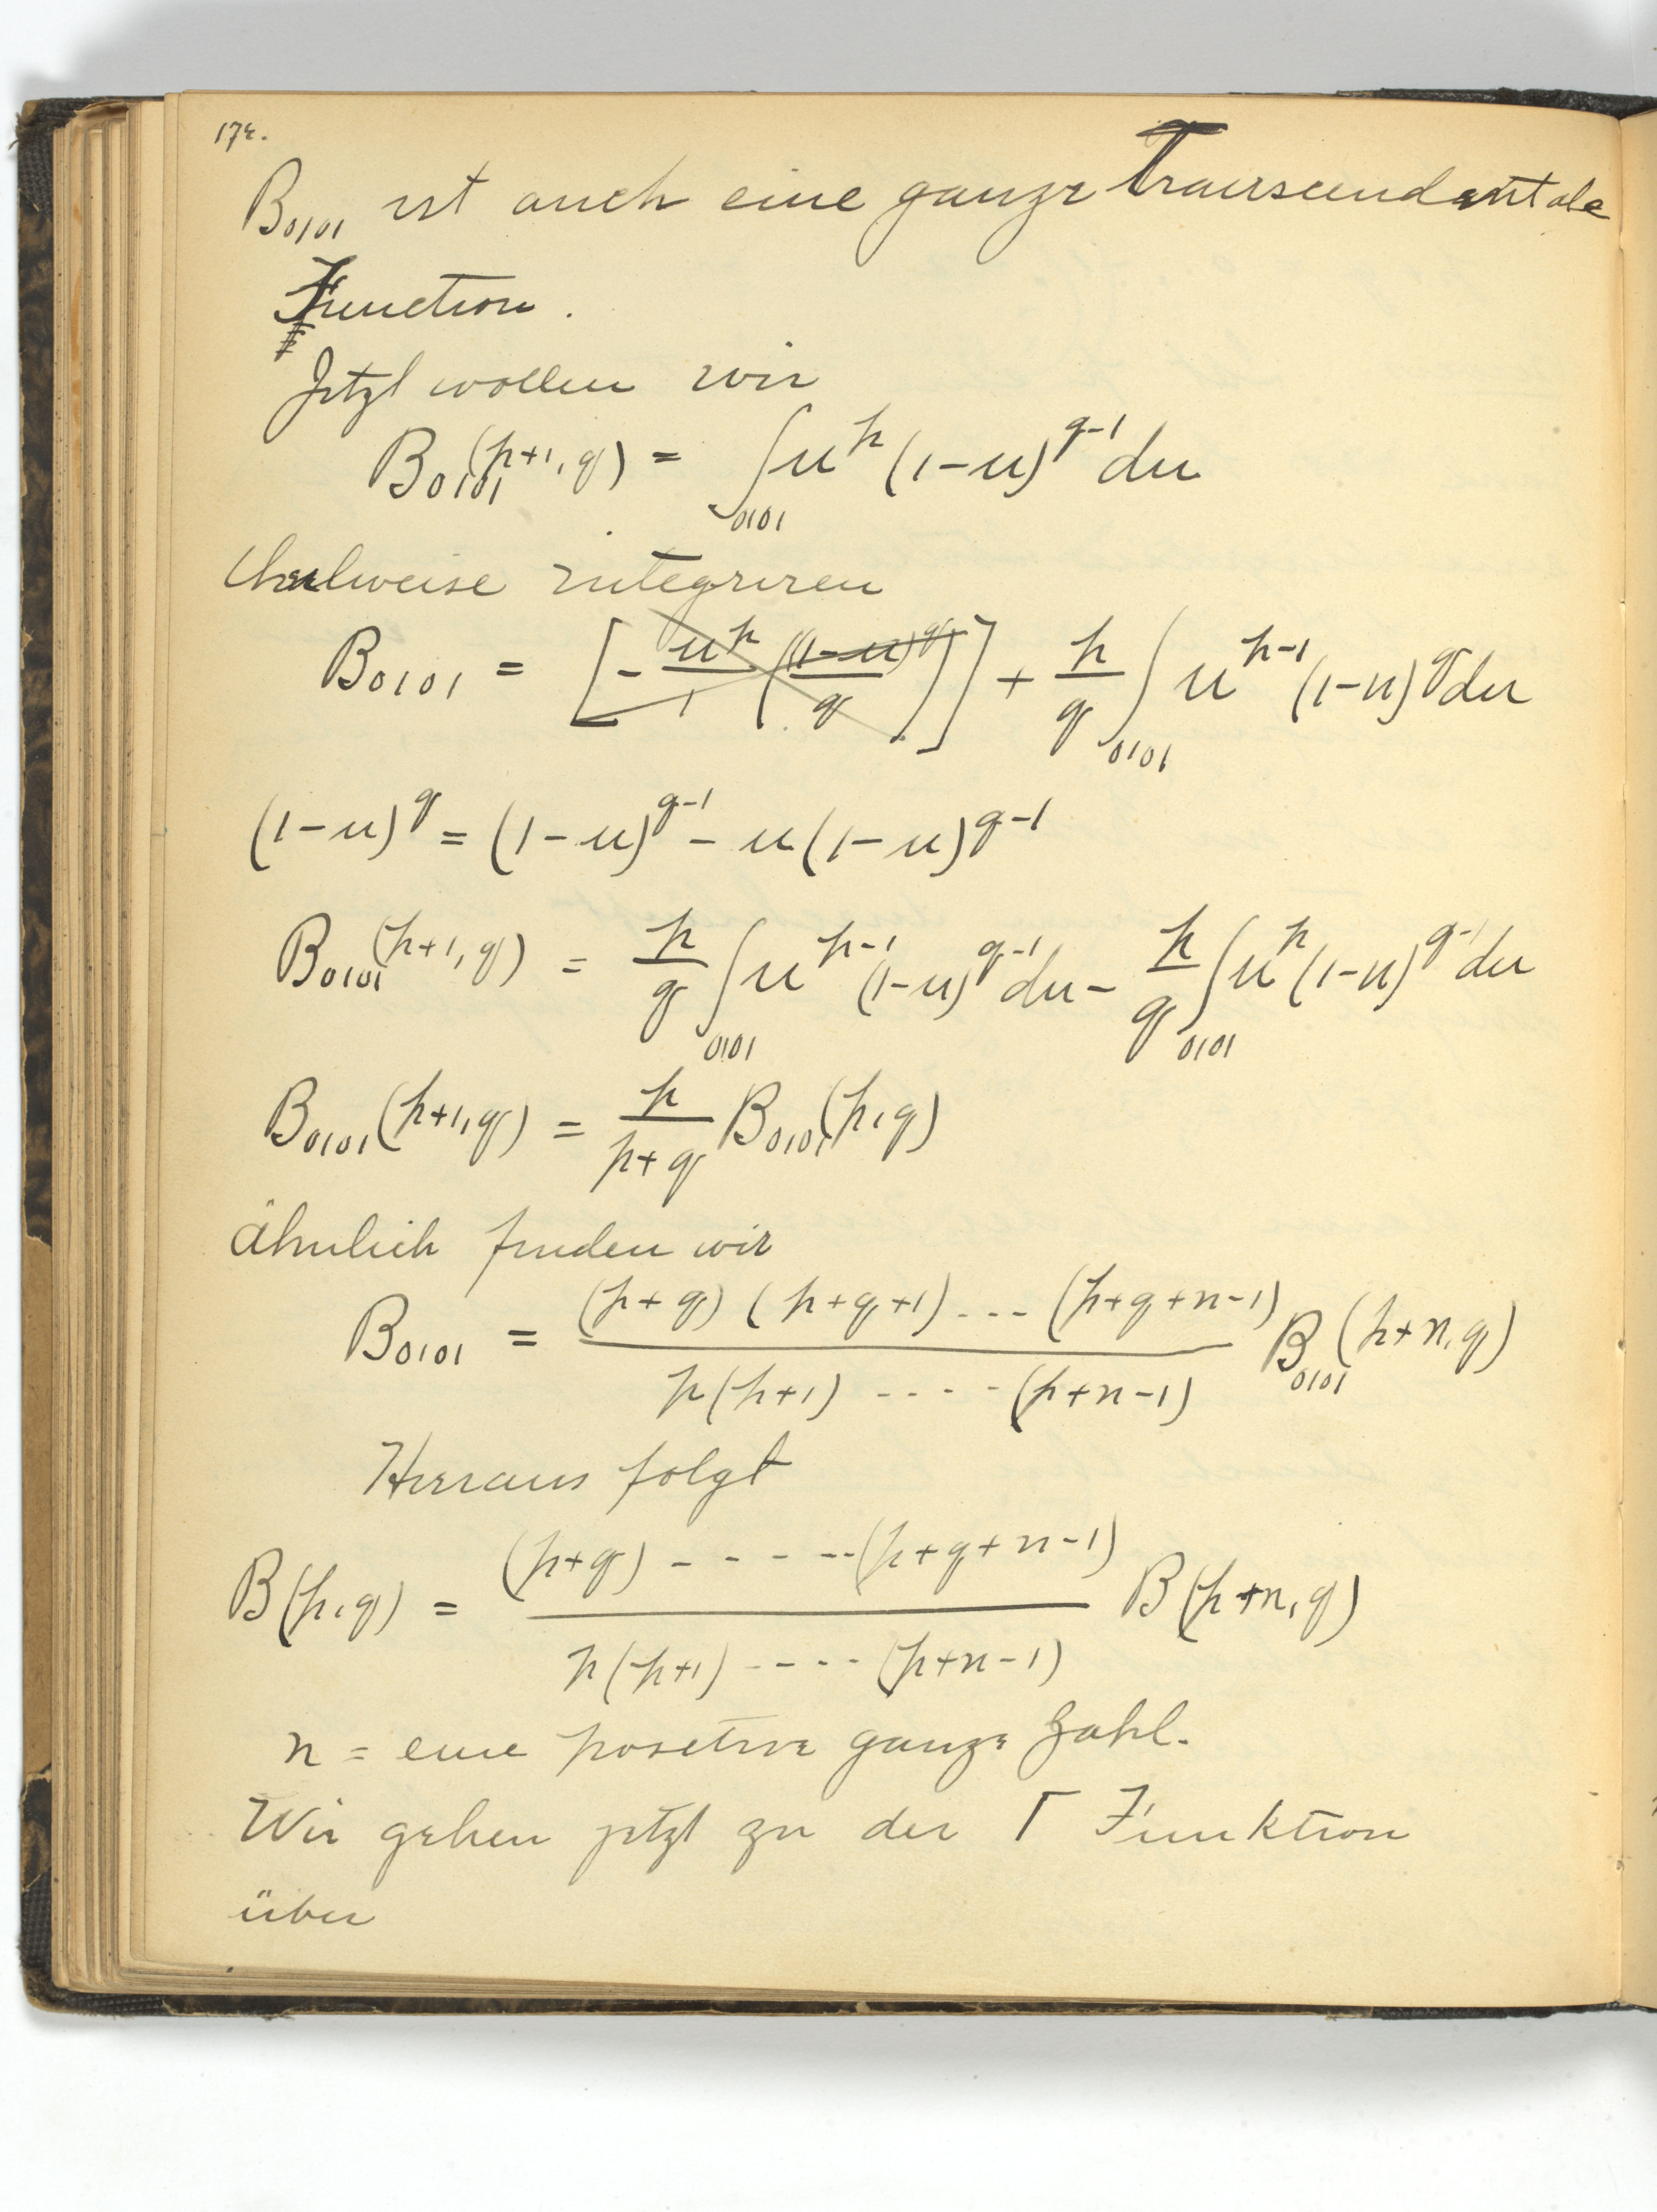 174.
B₀₁₀₁ ist auch eine ganze Transcendentale
Function.
Jetzt wollen wir
B₀₁₀₁(p+1, q) = ∫₀₁₀₁ u^p (1-u)^{q-1} du
theilweise integriren
B₀₁₀₁ = [- u^p/1 ((1-u)^q/q)] + p/q ∫₀₁₀₁ u^{p-1} (1-u)^q du
(1-u)^q = (1-u)^{q-1} - u(1-u)^{q-1}
B₀₁₀₁(p+1, q) = p/q ∫₀₁₀₁ u^{p-1} (1-u)^{q-1} du - p/q ∫₀₁₀₁ u^p (1-u)^{q-1} du
B₀₁₀₁(p+1, q) = p/(p+q) B₀₁₀₁(p, q)
ähnlich finden wir
B₀₁₀₁ = (p+q) (p+q+1) --- (p+q+n-1) / p(p+1) ----- (p+n-1) B₀₁₀₁(p+n, q)
Hieraus folgt
B(p, q) = (p+q) ------ (p+q+n-1) / p(p+1) ----- (p+n-1) B(p+n, q)
n = eine positive ganze Zahl.
Wir gehen jetzt zu der Γ Funktion
über